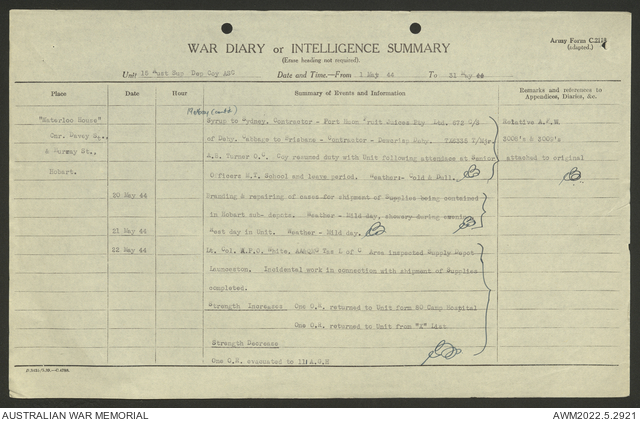 Army Form C.2118
(adapted.)
WAR DIARY or INTELLIGENCE SUMMARY
(Erase heading not required).
Unit 15 Aust Sup Dep Coy AASC Date and Time.—From 1 May 44 To 31 May 44
Place Date Hour Summary of Events and Information Remarks and references to Appendices, Diaries, &c.
"Waterloo House"
Cnr. Davey St.,
& Murray St.,
Hobart.
Syrup to Sydney. Contractor - Port Huon Fruit Juices Pty Ltd. 479 C/S
of Dehy. Cabbage to Brisbane - Contractor - Dewcrisp Dehy.
A.S. Turner O.C. Coy resumed duty with Unit following attendance at Senior
Officers School and leave period. Weather:- Cold & Dull.
Relative A.F.W.
3006's & 3008's
attached to original
20 May 44 Branding & repairing of cases for shipment of Supplies being sustained
in Hobart sub- depots. Weather - Mild day, showery during evening
21 May 44 Rest day in Unit. Weather - Mild day.
22 May 44 Lt. Col. White. Tas L of C Area inspected Supply Depot
Launceston. Incidental work in connection with shipment of Supplies
completed.
Strength Increases One O.R. returned to Unit form Camp Hospital
One O.R. returned to Unit from "X" List
Strength Decrease
One O.R. evacuated to 111 A.G.H
AUSTRALIAN WAR MEMORIAL
AWM2022.5.2921